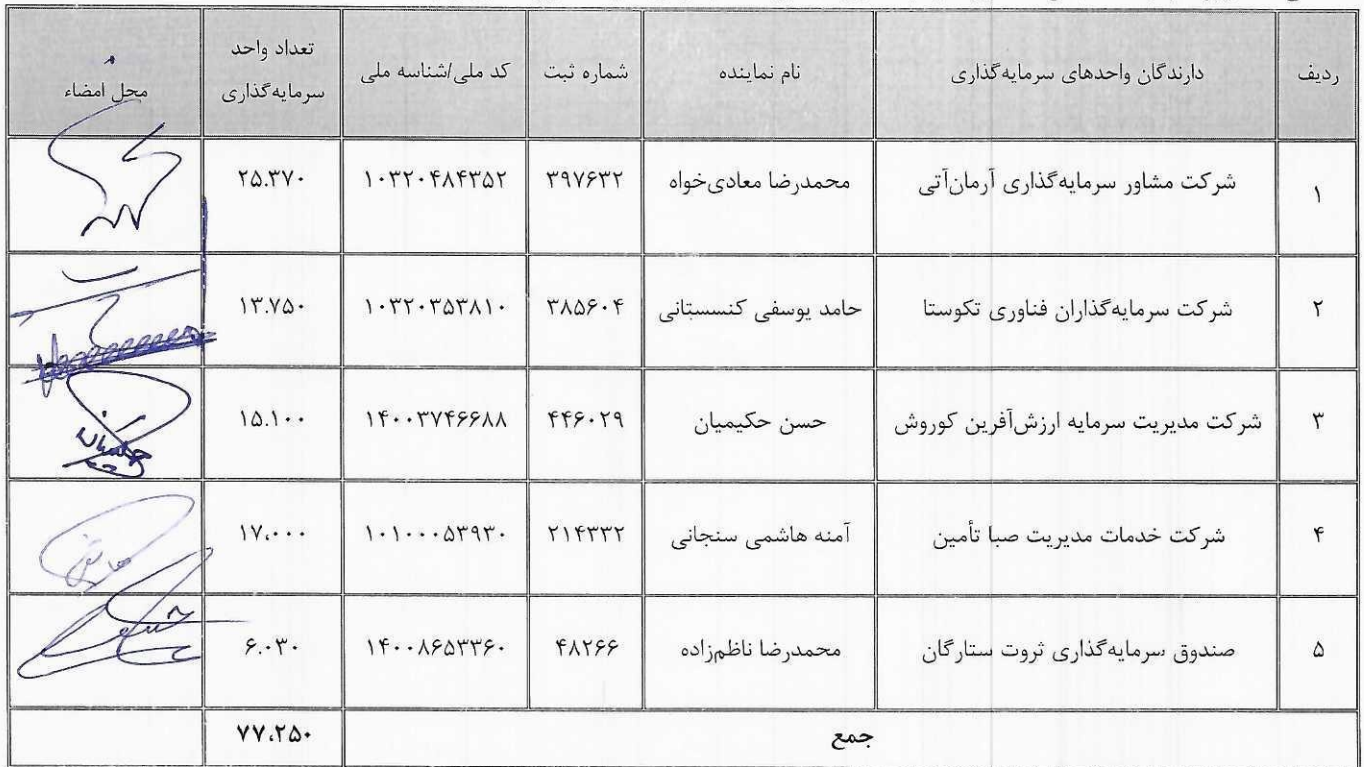 ردیف دارندگان واحدهای سرمایه‌گذاری نام نماینده شماره ثبت کد ملی/شناسه ملی تعداد واحد سرمایه‌گذاری محل امضاء
۱ شرکت مشاور سرمایه‌گذاری آرمان‌آتی محمدرضا معادی‌خواه ۳۹۷۶۳۲ ۱۰۳۲۰۴۸۴۳۵۲ ۲۵.۳۷۰
۲ شرکت سرمایه‌گذاران فناوری تکوستا حامد یوسفی کنسستانی ۳۸۵۶۰۴ ۱۰۳۲۰۳۵۳۸۱۰ ۱۳.۷۵۰
۳ شرکت مدیریت سرمایه ارزش‌آفرین کوروش حسن حکیمیان ۴۴۶۰۲۹ ۱۴۰۰۳۷۴۶۶۸۸ ۱۵.۱۰۰
۴ شرکت خدمات مدیریت صبا تأمین آمنه هاشمی سنجانی ۲۱۴۳۳۲ ۱۰۱۰۰۰۵۳۹۳۰ ۱۷،۰۰۰
۵ صندوق سرمایه‌گذاری ثروت ستارگان محمدرضا ناظم‌زاده ۴۸۲۶۶ ۱۴۰۰۸۶۵۳۳۶۰ ۶.۰۳۰
جمع ۷۷،۲۵۰